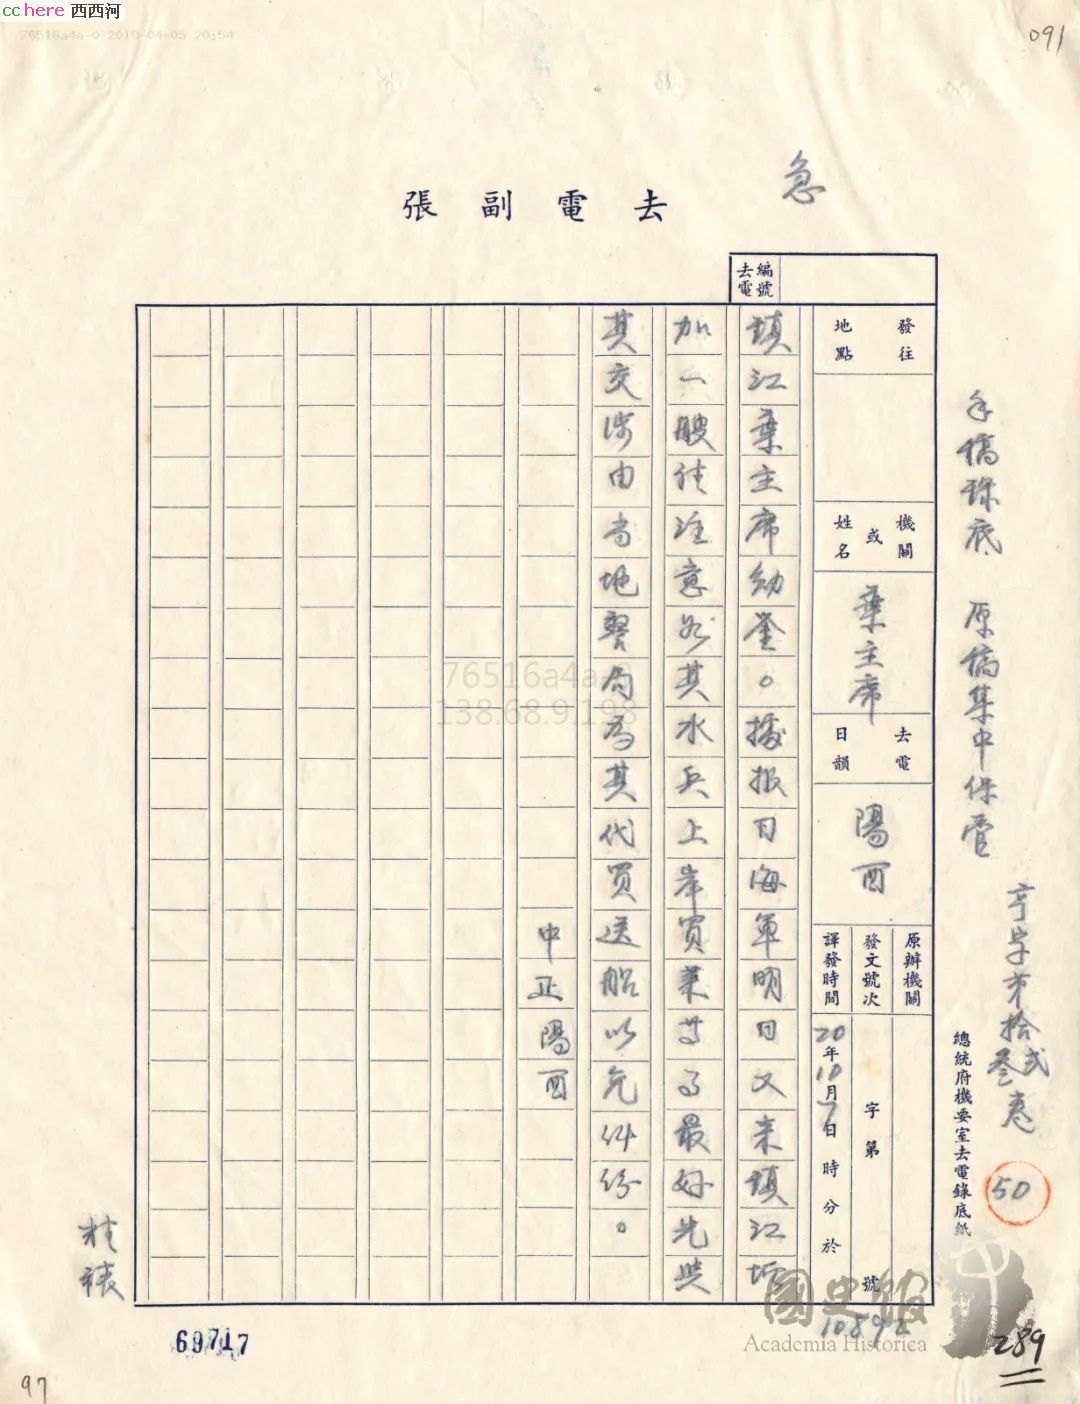 cchere 西西河
76516a4a-0 2019-04-05 20:54
091
急
去電副張
去電編號
發往地點
機關或姓名
葉主席
去電日韻
陽酉
原辦機關
發文號次
字第 號
譯發時間
20年10月7日 時 分於
鎮江葉主席勛鑒。據報日海軍明日又來鎮江
加一艘請注意於其水兵上岸買菜等事最好先與
其交涉由當地警局為其代買送船以免糾紛。
中正陽酉
手稿錄底 原稿集中保管
亨字第拾貳叁卷
50
總統府機要室去電錄底紙
76516a4a-0
138.68.9.198
69717
國史館
Academia Historica
289
97